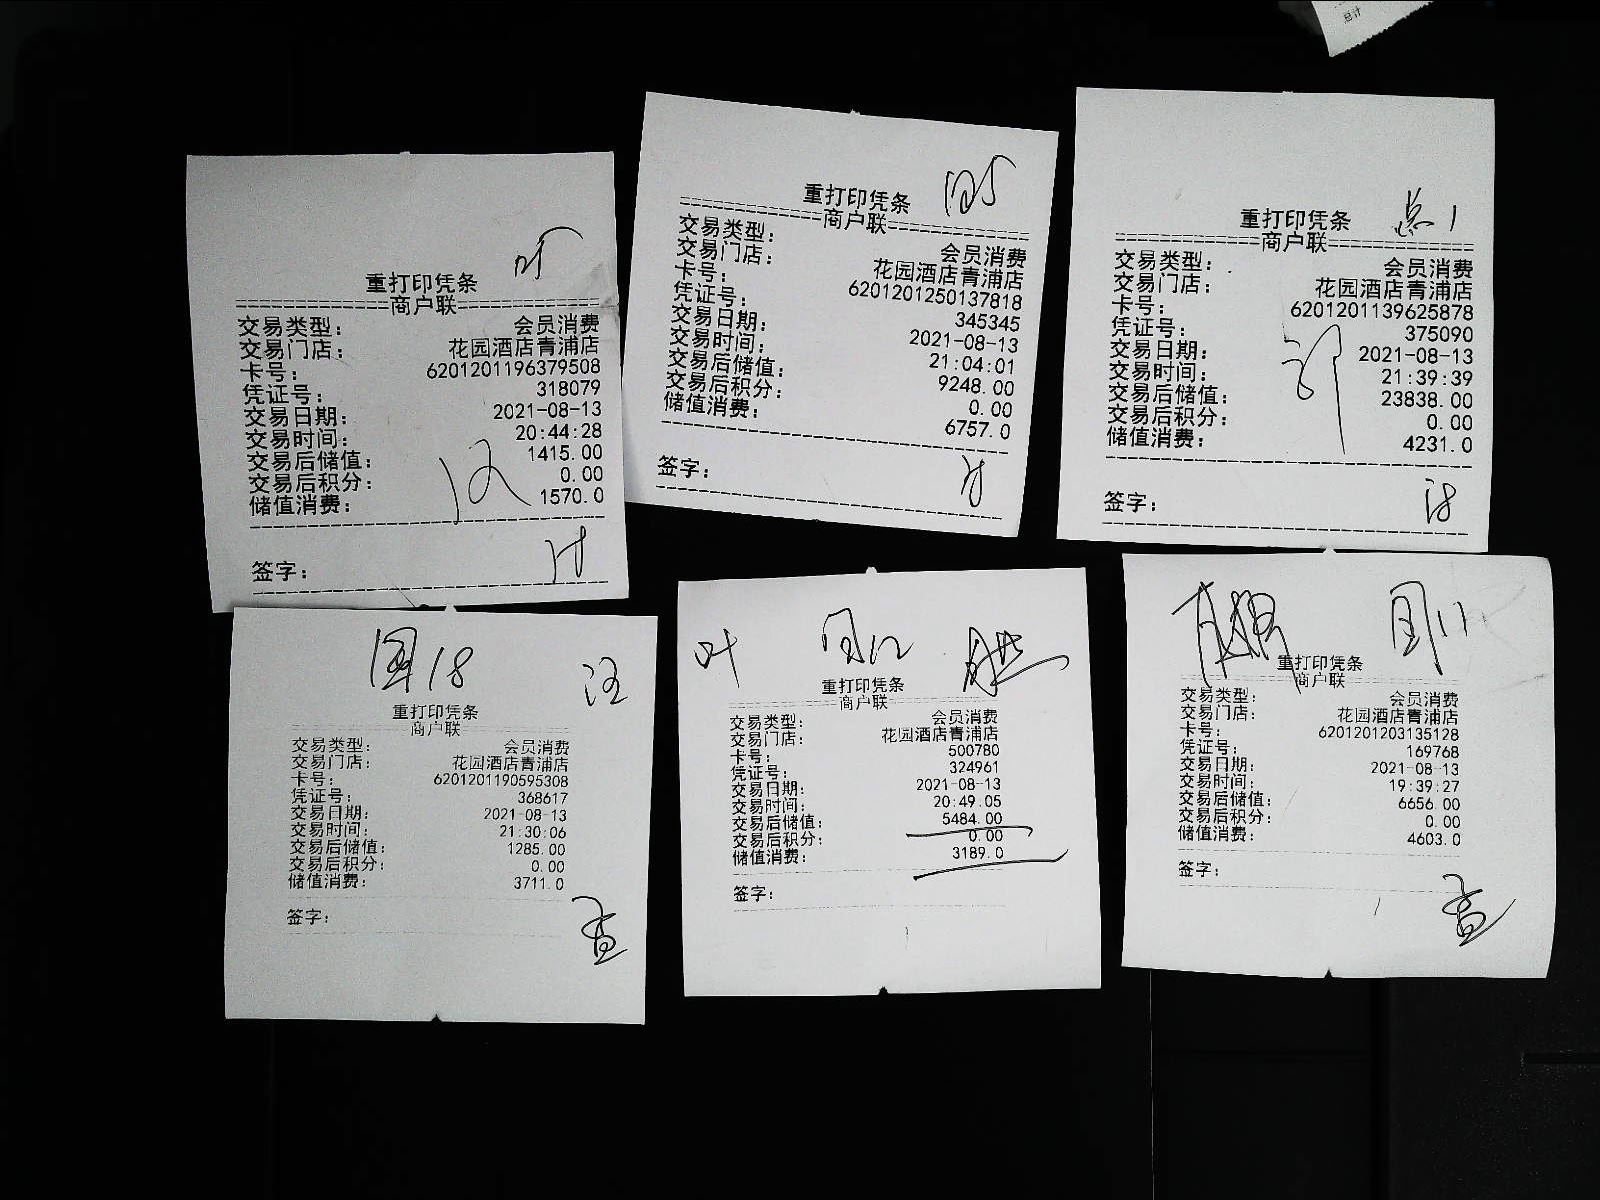 总计
重打印凭条
商户联
交易类型： 会员消费
交易门店： 花园酒店青浦店
卡号： 6201201196379508
凭证号： 318079
交易日期： 2021-08-13
交易时间： 20:44:28
交易后储值： 1415.00
交易后积分： 0.00
储值消费： 1570.0
签字：
重打印凭条
商户联
交易类型： 会员消费
交易门店： 花园酒店青浦店
卡号： 6201201250137818
凭证号： 345345
交易日期： 2021-08-13
交易时间： 21:04:01
交易后储值： 9248.00
交易后积分： 0.00
储值消费： 6757.0
签字：
点1
重打印凭条
商户联
交易类型： 会员消费
交易门店： 花园酒店青浦店
卡号： 6201201139625878
凭证号： 375090
交易日期： 2021-08-13
交易时间： 21:39:39
交易后储值： 23838.00
交易后积分： 0.00
储值消费： 4231.0
签字：
国18 汪
重打印凭条
商户联
交易类型： 会员消费
交易门店： 花园酒店青浦店
卡号： 6201201190595308
凭证号： 368617
交易日期： 2021-08-13
交易时间： 21:30:06
交易后储值： 1285.00
交易后积分： 0.00
储值消费： 3711.0
签字：
叶
重打印凭条
商户联
交易类型： 会员消费
交易门店： 花园酒店青浦店
卡号： 500780
凭证号： 324961
交易日期： 2021-08-13
交易时间： 20:49:05
交易后储值： 5484.00
交易后积分： 0.00
储值消费： 3189.0
签字：
重打印凭条
商户联
交易类型： 会员消费
交易门店： 花园酒店青浦店
卡号： 6201201203135128
凭证号： 169768
交易日期： 2021-08-13
交易时间： 19:39:27
交易后储值： 6656.00
交易后积分： 0.00
储值消费： 4603.0
签字：